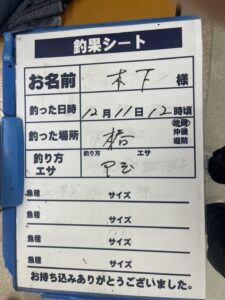 釣果シート
お名前 木下 様
釣った日時 12月11日12時頃
釣った場所 橋 地磯 沖磯 堤防
釣り方 エサ 釣り方 エサ
魚種 サイズ
魚種 サイズ
魚種 サイズ
魚種 サイズ
お持ち込みありがとうございました。